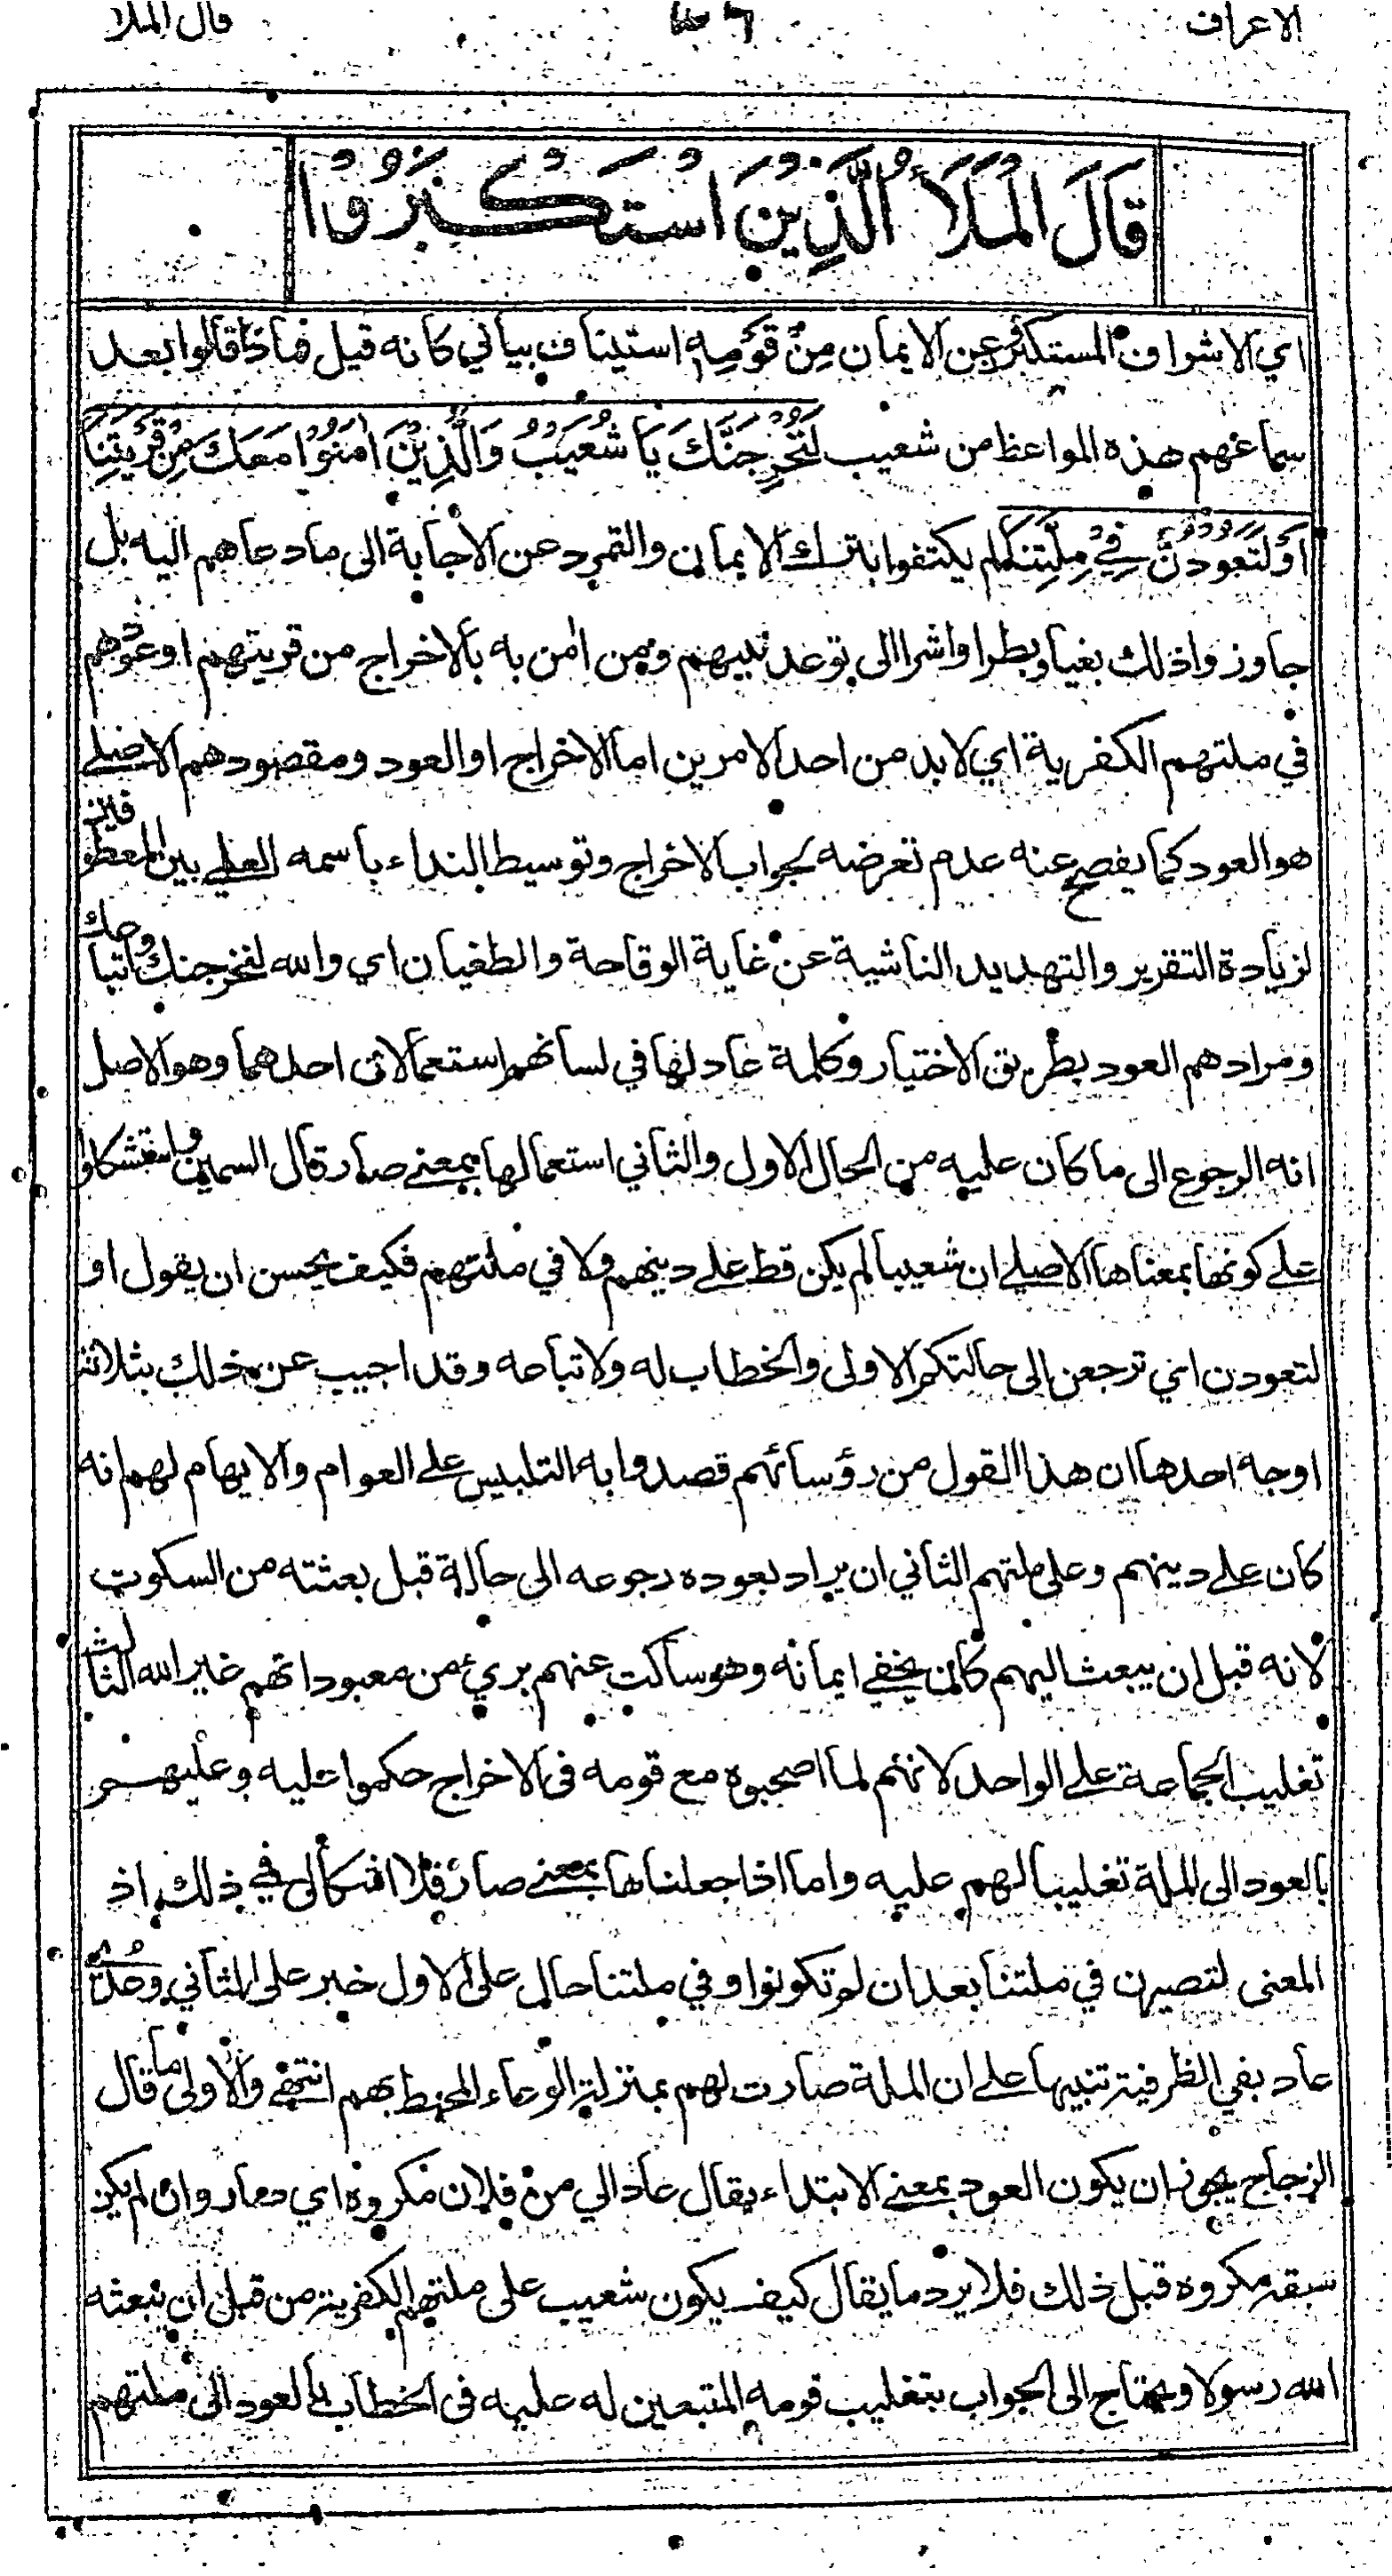 الاعراف
قال الملا
قَالَ الْمَلَأُ الَّذِيْنَ اسْتَكْبَرُوْا
اي الاشراف المستكبرين عن الايمان مِنْ قَوْمِهٖ استيناف بياني كانه قيل فماذا قالوا بعد
سماعهم هذه المواعظ من شعيب لَنُخْرِجَنَّكَ يَا شُعَيْبُ وَالَّذِيْنَ اٰمَنُوْا مَعَكَ مِنْ قَرْيَتِنَا
اَوْ لَتَعُوْدُنَّ فِيْ مِلَّتِنَا لم يكتفوا بترك الايمان والتمرد عن الاجابة الى ما دعاهم اليه بل
جاوزوا ذلك بغيا وبطرا واشرا الى توعد نبيهم ومن اٰمن به بالاخراج من قريتهم او عودهم
في ملتهم الكفرية اي لا بد من احد الامرين اما الاخراج او العود ومقصودهم الاصلي
هو العود كما يفصح عنه عدم تعرضه لجواب الاخراج وتوسيط النداء باسمه العلي بين المعطوفين
لزيادة التقرير والتهديد الناشية عن غاية الوقاحة والطغيان اي والله لنخرجنك واتباعك
ومرادهم العود بطريق الاختيار وكلمة عاد لها في لسانهم استعمالان احدهما وهو الاصل
انه الرجوع الى ما كان عليه من الحال الاول والثاني استعمالها بمعنى صار قال السمين واستشكلوا
على كونها بمعناها الاصلي ان شعيبا لم يكن قط على دينهم ولا في ملتهم فكيف يحسن ان يقول او
لتعودن اي ترجعن الى حالتكم الاولى والخطاب له ولاتباعه وقد اجيب عن ذلك بثلاثة
اوجه احدها ان هذا القول من رؤسائهم قصدوا به التلبيس على العوام والايهام لهم انه
كان على دينهم وعلى ملتهم الثاني ان يراد بعوده رجوعه الى حالة قبل بعثته من السكوت
لانه قبل ان يبعث اليهم كان يخفي ايمانه وهو ساكت عنهم بريء من معبوداتهم غير الله الثالث
تغليب الجماعة على الواحد لانهم لما اصحبوه مع قومه في الاخراج حكموا عليه وعليهم
بالعود الى الملة تغليبا لهم عليه واما اذا جعلناها بمعنى صار فلا اشكال في ذلك اذ
المعنى لتصيرن في ملتنا بعد ان لم تكونوا وفي ملتنا حال على الاول خبر على الثاني وعُدّي
عاد بفي الظرفية تنبيها على ان الملة صارت لهم بمنزلة الوعاء المحيط بهم انتهى والاولى ما قال
الزجاج يجوز ان يكون العود بمعنى الابتداء يقال عاد الي من فلان مكروه اي صار وان لم يكن
سبقه مكروه قبل ذلك فلا يرد ما يقال كيف يكون شعيب على ملتهم الكفرية من قبل ان يبعثه
الله رسولا ويحتاج الى الجواب بتغليب قومه المتبعين له عليه في الخطاب بالعود الى ملتهم